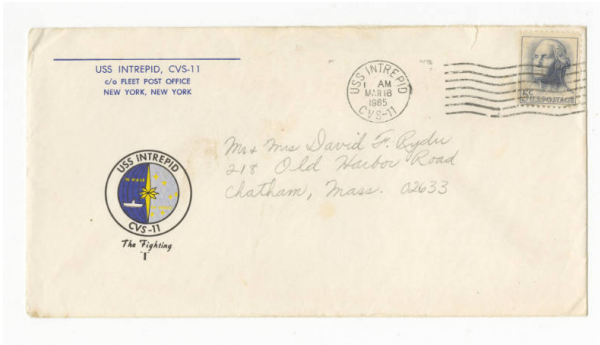 USS INTREPID, CVS-11
c/o FLEET POST OFFICE
NEW YORK, NEW YORK
USS INTREPID
AM
MAR 18
1965
CVS-11
5¢
U.S. POSTAGE
Mr & Mrs David F. Ryder
218 Old Harbor Road
Chatham, Mass. 02633
USS INTREPID
CVS-11
The Fighting
"I"